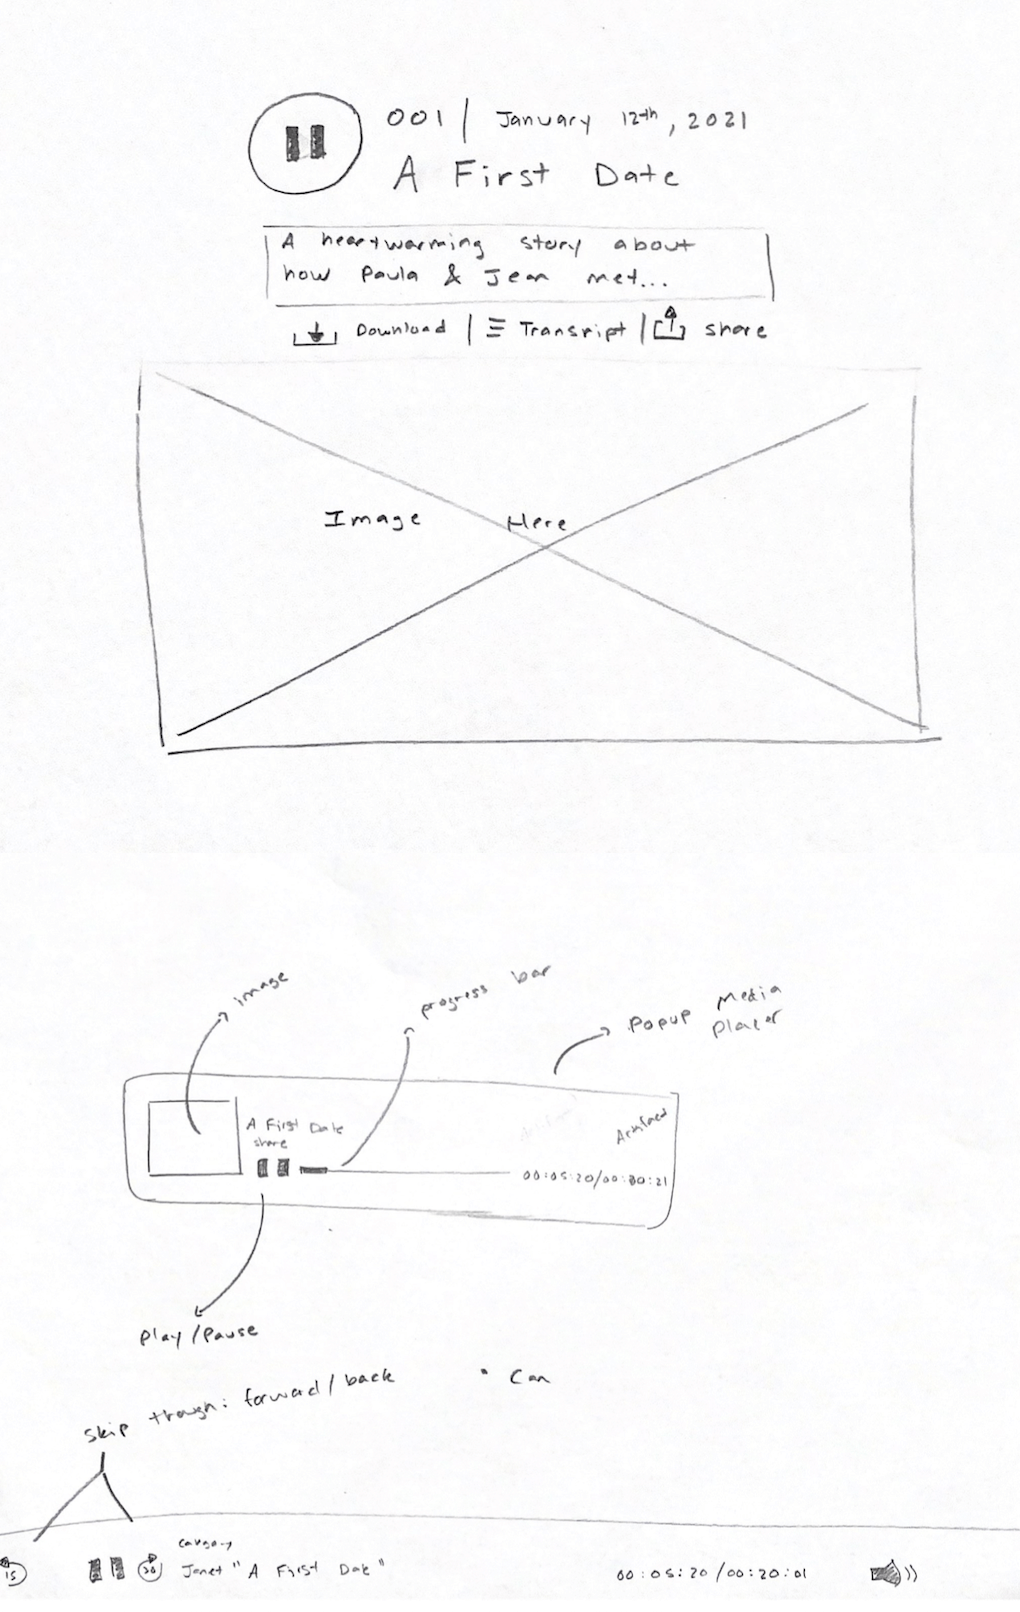 001 | January 12th, 2021
A First Date
A heartwarming story about
how Paula & Jean met...
Download | Transript | share
Image Here
image
progress bar
Popup Media
Player
A First Date
share
00:05:20/00:30:21
Play/Pause
skip though: forward/back
• Can
15
30
Janet "A First Date"
00:05:20/00:20:01